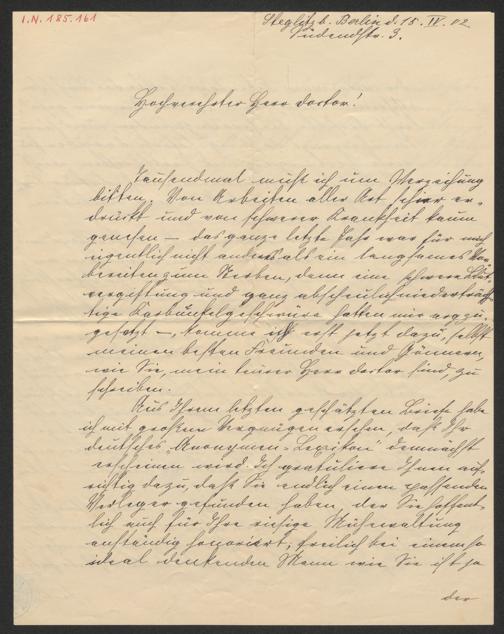 I.N. 185.161
Steglitz b. Berlin d. 15. IV. 02
Südendstr. 3.
Hochverehrter Herr Doctor!
Tausendmal muß ich um Verzeihung
bitten. Von Arbeiten aller Art schier er-
drückt und von schwerer Krankheit kaum
genesen – das ganze letzte Jahr war für mich
eigentlich nicht anders als ein langsames Vor-
bereiten zum Sterben, denn eine schwere Blut
vergiftung und ganz abscheulich niederträch-
tige Karbunkelgeschwüre hatten mir arg zu-
gesetzt –, komme ich erst jetzt dazu, selbst
meinen besten Freunden und Gönnern,
wie Sie, mein teurer Herr Doctor sind, zu
schreiben.
Aus Ihrem letzten geschätzten Briefe habe
ich mit großem Vergnügen ersehen, daß Ihr
deutsches „Anonymen-Lexikon" demnächst
erscheinen wird. Ich gratuliere Ihnen auf-
richtig dazu, daß Sie endlich einen passenden
Verleger gefunden haben, der Sie hoffent-
lich auch für Ihre riesige Mühewaltung
anständig honoriert; freilich bei einem so
ideal denkenden Mann wie Sie ist ja
der